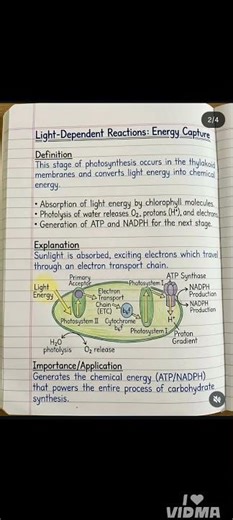 2/4
Light-Dependent Reactions: Energy Capture
Definition
This stage of photosynthesis occurs in the thylakoid
membranes and converts light energy into chemical
energy.
• Absorption of light energy by chlorophyll molecules.
• Photolysis of water releases O₂, protons (H⁺), and electrons.
• Generation of ATP and NADPH for the next stage.
Explanation
Sunlight is absorbed, exciting electrons which travel
through an electron transport chain.
Light
Energy
Primary
Acceptor
Electron
Transport
Chain
(ETC)
Photosystem I
ATP Synthase
NADPH
Production
NADPH
Production
b₆f
H⁺
Photosystem II
Cytochrome
b₆f
Photosystem I
Proton
Gradient
H₂O
photolysis
O₂ release
Importance/Application
Generates the chemical energy (ATP/NADPH)
that powers the entire process of carbohydrate
synthesis.
I
VIDMA